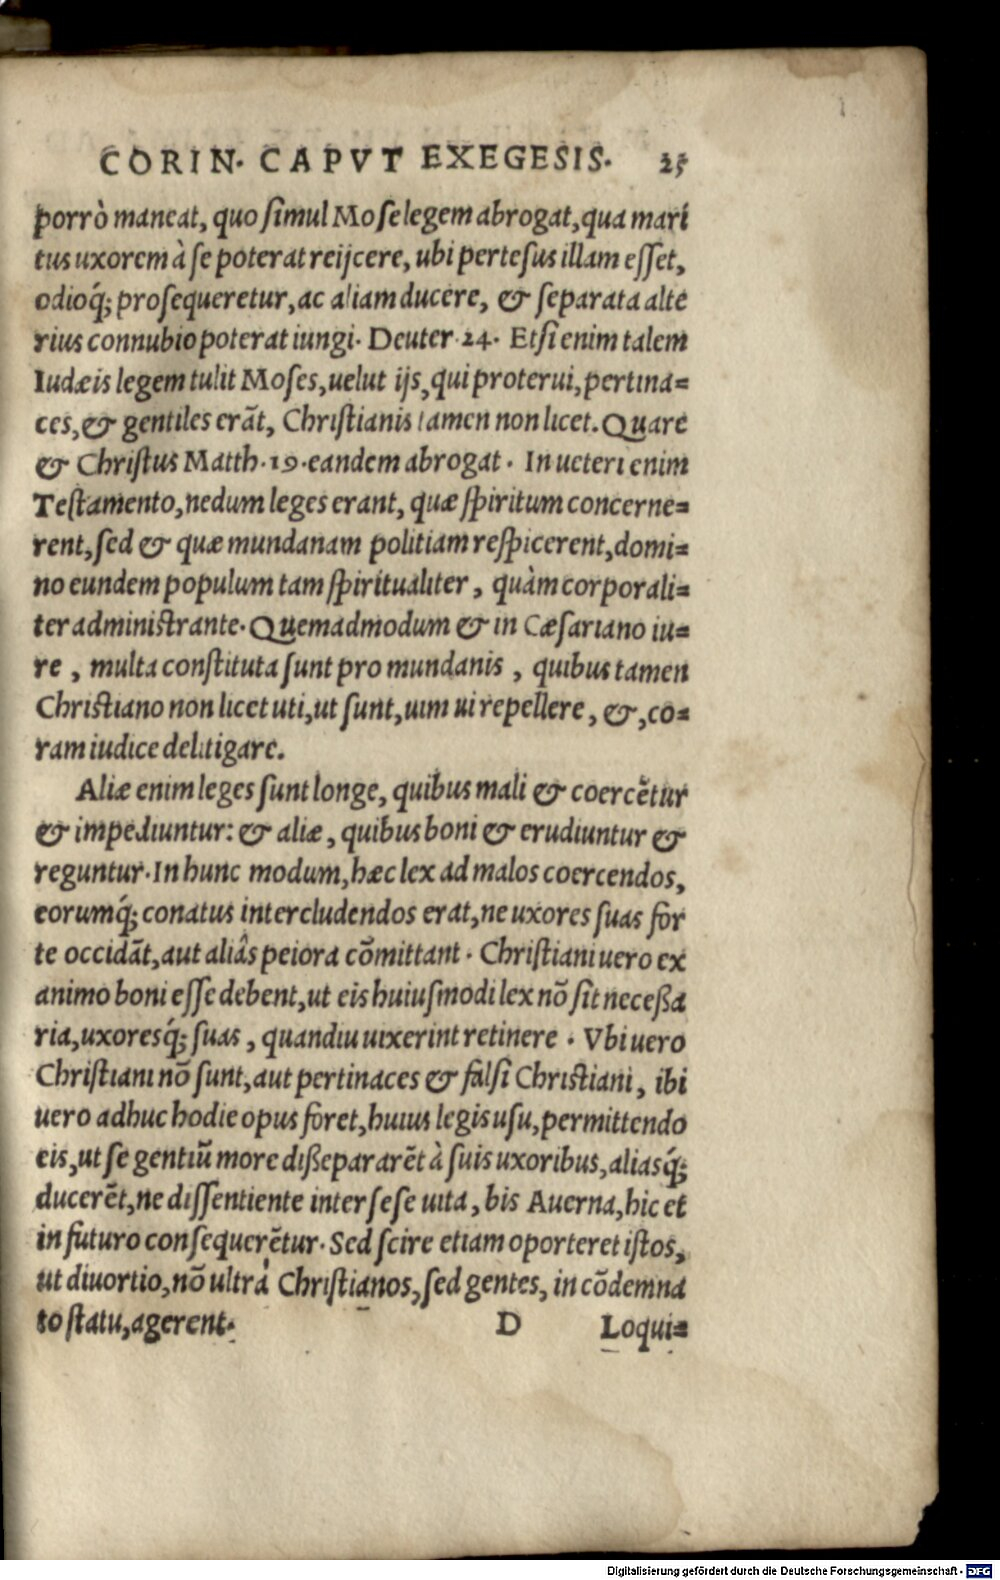 CORIN. CAPVT EXEGESIS. 25
porrò maneat, quo simul Mose legem abrogat, qua mari
tus uxorem à se poterat reijcere, ubi pertesus illam esset,
odioq́; prosequeretur, ac aliam ducere, & separata alte
rius connubio poterat iungi. Deuter. 24. Etsi enim talem
Iudæis legem tulit Moses, uelut ijs, qui proterui, pertina=
ces, & gentiles erãt, Christianis tamen non licet. Quare
& Christus Matth. 19. eandem abrogat. In ueteri enim
Testamento, nedum leges erant, quæ spiritum concerne=
rent, sed & quæ mundanam politiam respicerent, domi=
no eundem populum tam spiritualiter, quàm corporali=
ter administrante. Quemadmodum & in Cæsariano iu=
re, multa constituta sunt pro mundanis, quibus tamen
Christiano non licet uti, ut sunt, uim ui repellere, &, co=
ram iudice delitigare.
Aliæ enim leges sunt longe, quibus mali & coercẽtur
& impediuntur: & aliæ, quibus boni & erudiuntur &
reguntur. In hunc modum, hæc lex ad malos coercendos,
eorumq́; conatus intercludendos erat, ne uxores suas for
te occidãt, aut aliâs peiora cõmittant. Christiani uero ex
animo boni esse debent, ut eis huiusmodi lex nõ sit necessa
ria, uxoresq́; suas, quandiu uixerint retinere. Vbi uero
Christiani nõ sunt, aut pertinaces & falsi Christiani, ibi
uero adhuc hodie opus foret, huius legis usu, permittendo
eis, ut se gentiũ more dißepararẽt à suis uxoribus, aliasq́;
ducerẽt, ne dissentiente inter se se uita, bis Auerna, hic et
in futuro consequerẽtur. Sed scire etiam oporteret istos,
ut diuortio, nõ ultrà Christianos, sed gentes, in cõdemna
to statu, agerent.
D Loqui=
Digitalisierung gefördert durch die Deutsche Forschungsgemeinschaft - DFG